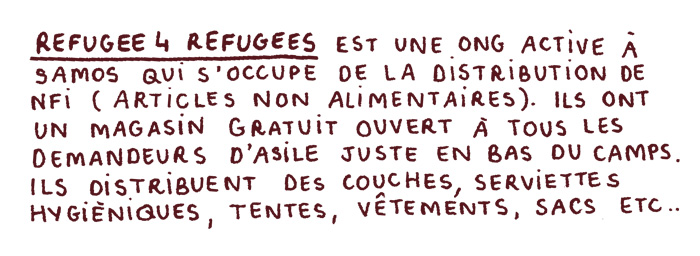 REFUGEE 4 REFUGEES EST UNE ONG ACTIVE À
SAMOS QUI S'OCCUPE DE LA DISTRIBUTION DE
NFI (ARTICLES NON ALIMENTAIRES). ILS ONT
UN MAGASIN GRATUIT OUVERT À TOUS LES
DEMANDEURS D'ASILE JUSTE EN BAS DU CAMPS.
ILS DISTRIBUENT DES COUCHES, SERVIETTES
HYGIÈNIQUES, TENTES, VÊTEMENTS, SACS ETC..